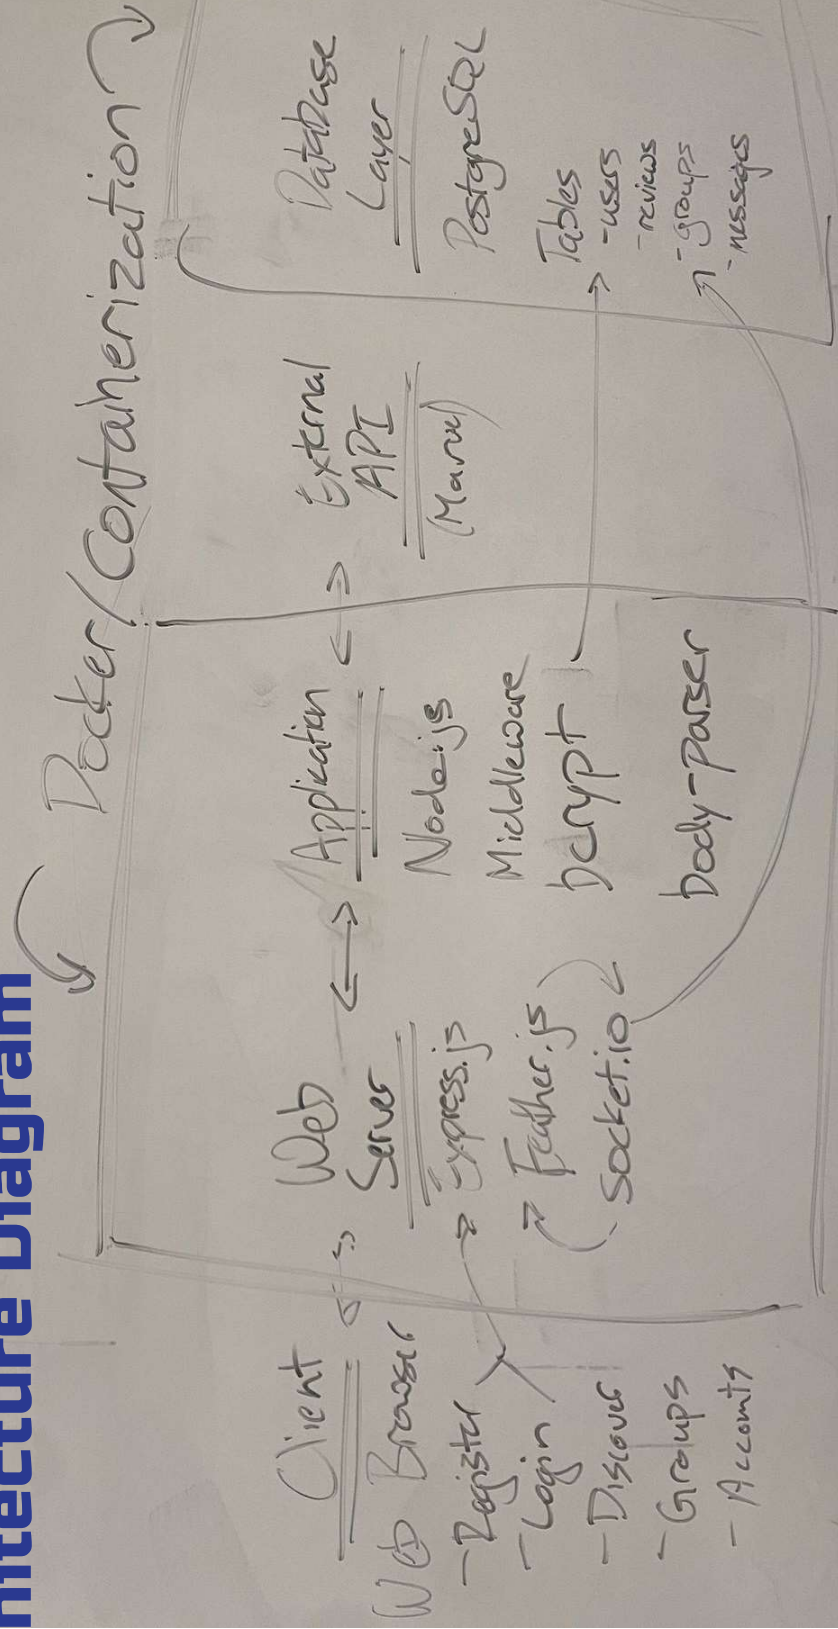 hitecture Diagram
Docker/Containerization
Client
Web Browser
- Register
- Login
- Discover
- Groups
- Accounts
Web
Server
Express.js
Feather.js
(socket.io
Application
Node.js
Middleware
bcrypt
body-parser
External
API
(Marvel)
Database
Layer
PostgreSQL
Tables
- users
- reviews
- groups
- messages